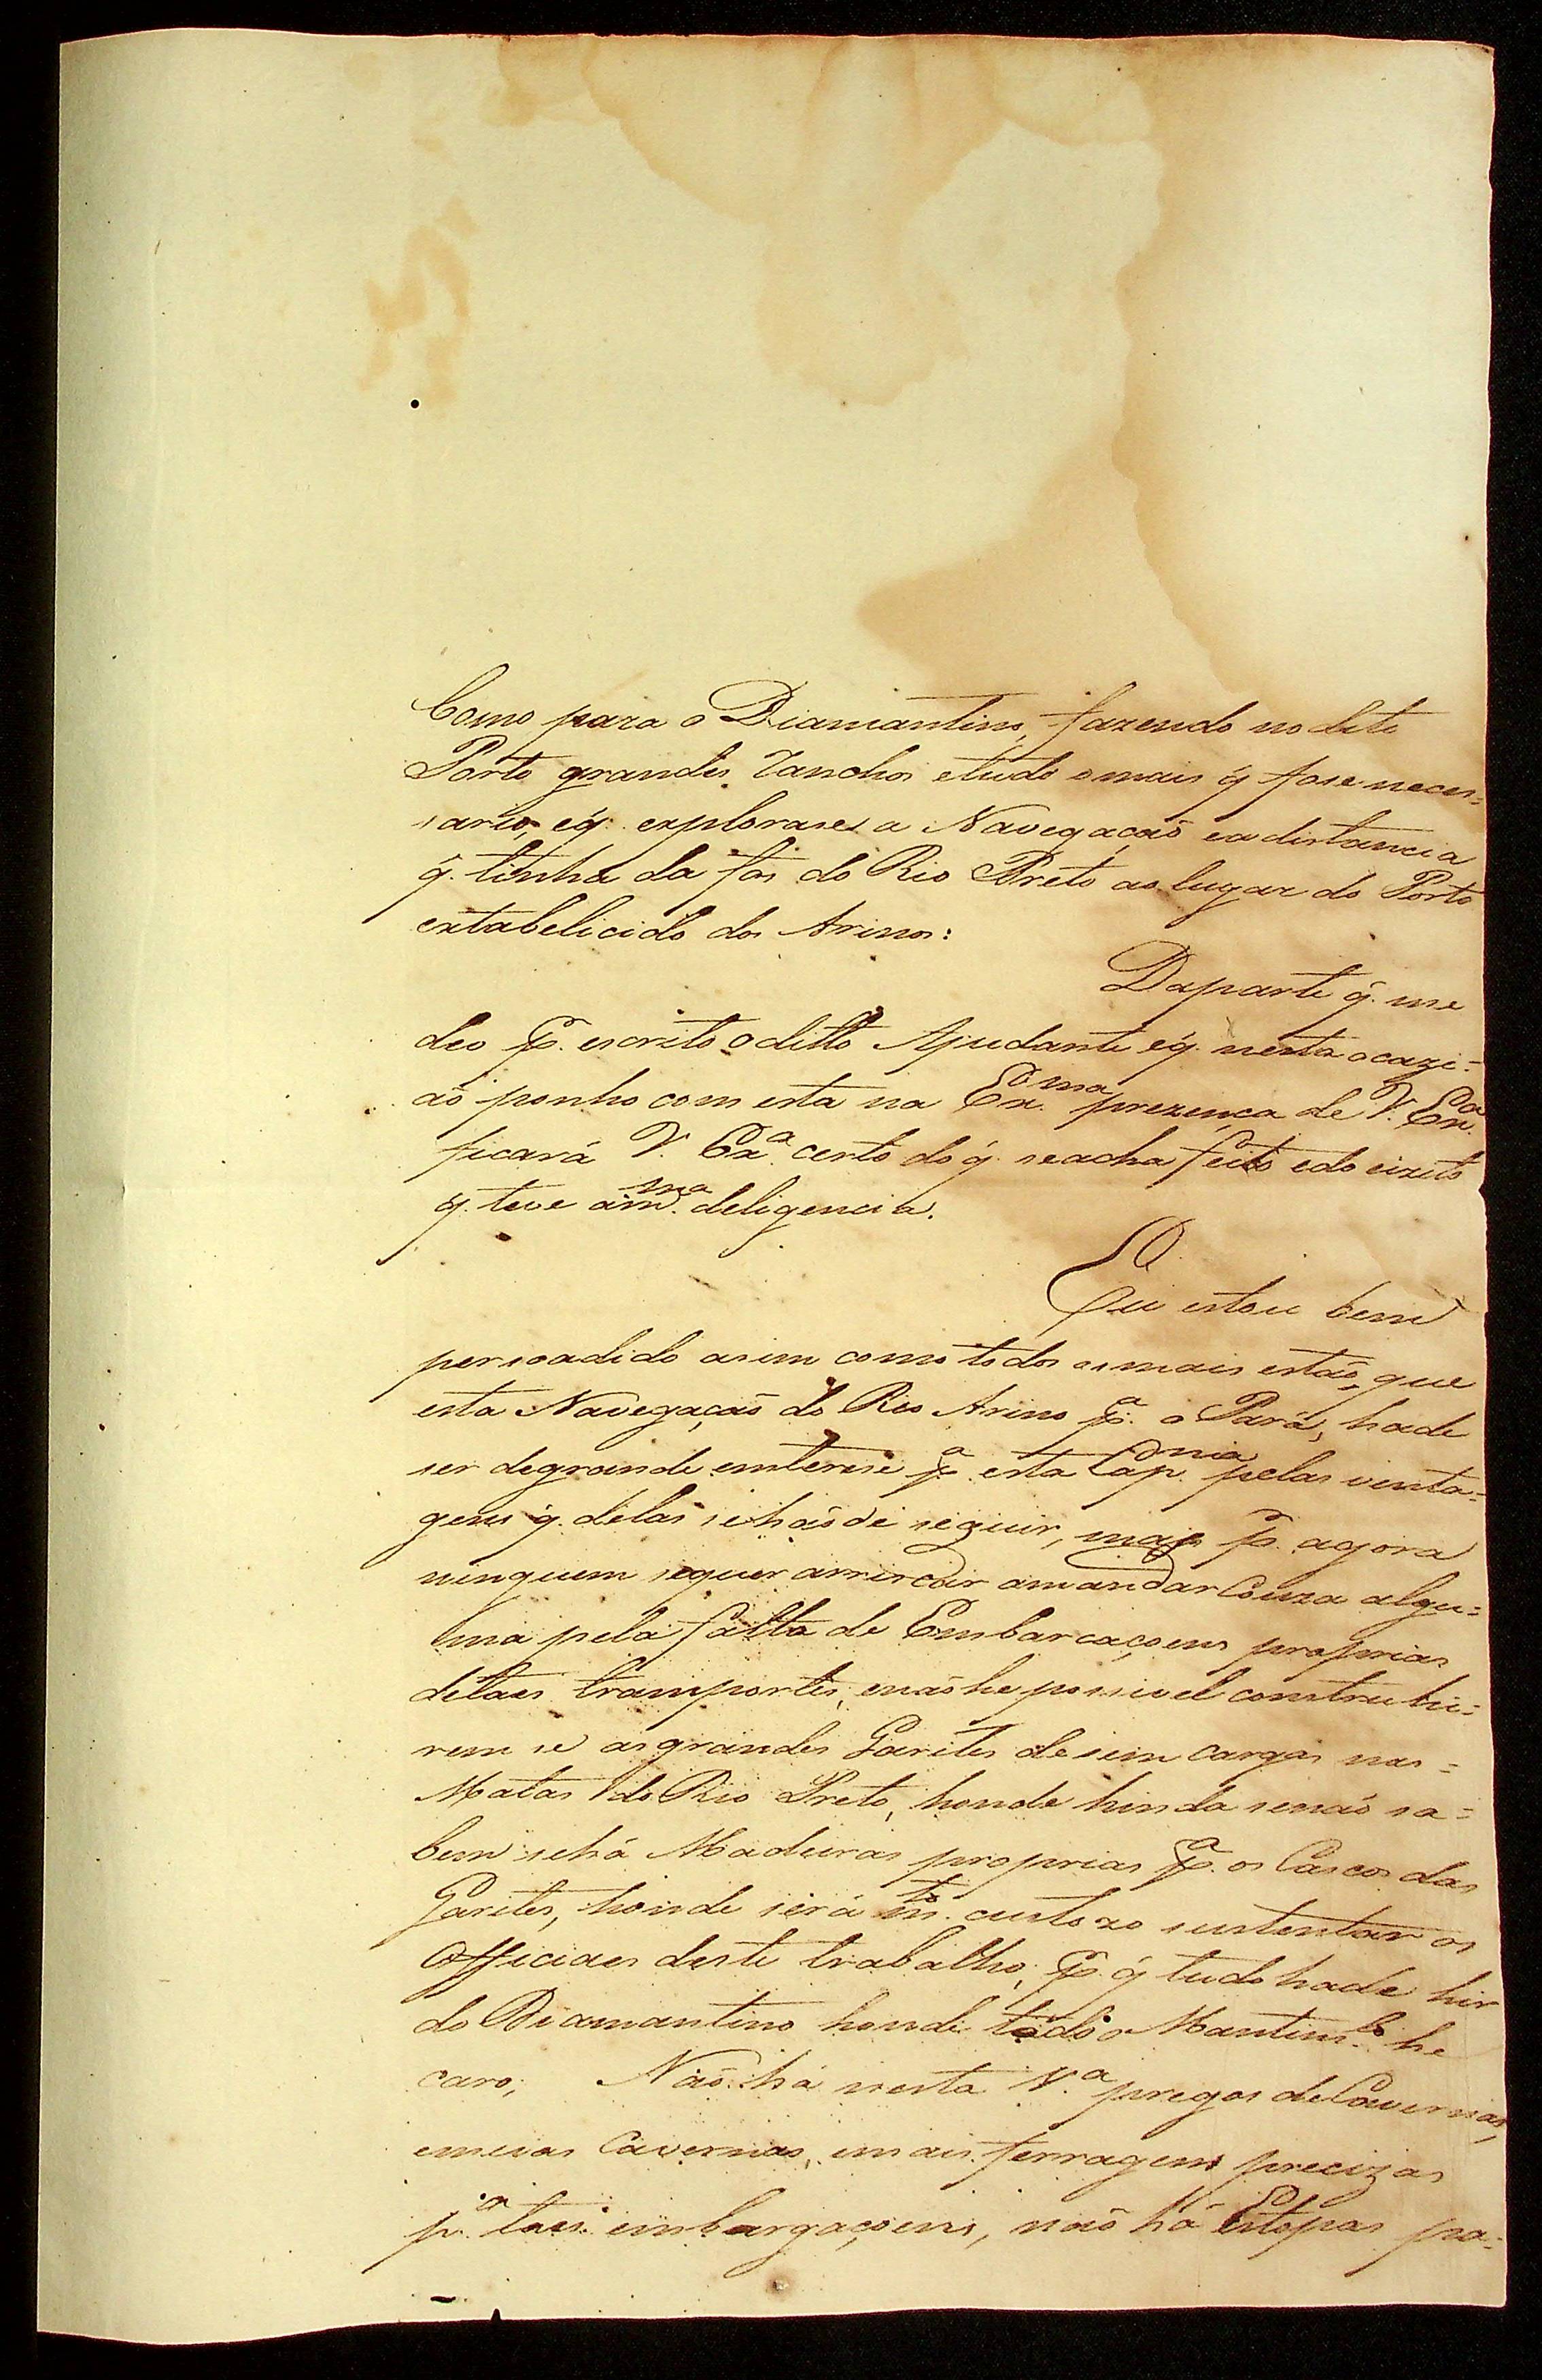 Como para o Diamantino, fazendo no dito
Porto grandes Ranchos etudo omais q̃ fose neces=
sario, eq̃. explorases a Navegaçaõ ea distancia
q̃. tinha da fos do Rio Preto ao lugar do Porto
extabelicido dos Arinos:
Daparte q̃. me
deo p̃. escrito oditto Ajudante eq̃. nesta ocazi=
aõ ponho com esta na Ex.ma prezença de V. Ex.a
ficará V. Ex.a certo doq̃. seacha feito edo eizito
q̃. teve am.ma deligencia.
Eu estou bem
persoadido asim como todos osmais estaõ, que
esta Navegaçaõ do Rio Arinos p.a o Pará, hade
ser degrande enterese p.a esta Cap.nia pelas venta=
gens q̃. delas sehaõde seguir, mas p̃. agora
ninguem sequer arriscar amandar Couza algu=
ma pela falta de Embarcaçoens proprias
detaes transportes, enaõhe possivel construhi=
rem se asgrandes Garites desem cargas nas=
Matas do Rio Preto, honde hinda senaõ sa=
bem sehá Madeiras proprias p.a os Cascos das
Garites, honde será m.to custozo sustentar os
Officiaes deste trabalho, p̃. q̃ tudo hade hir
do Diamantino honde todo o Mantim.to he
caro; Naõ há nesta V.a pregos de Cavernas,
emeias Cavernas, emais ferragens precizas
p.a taes embargaçoens, naõ há Estopas pa=